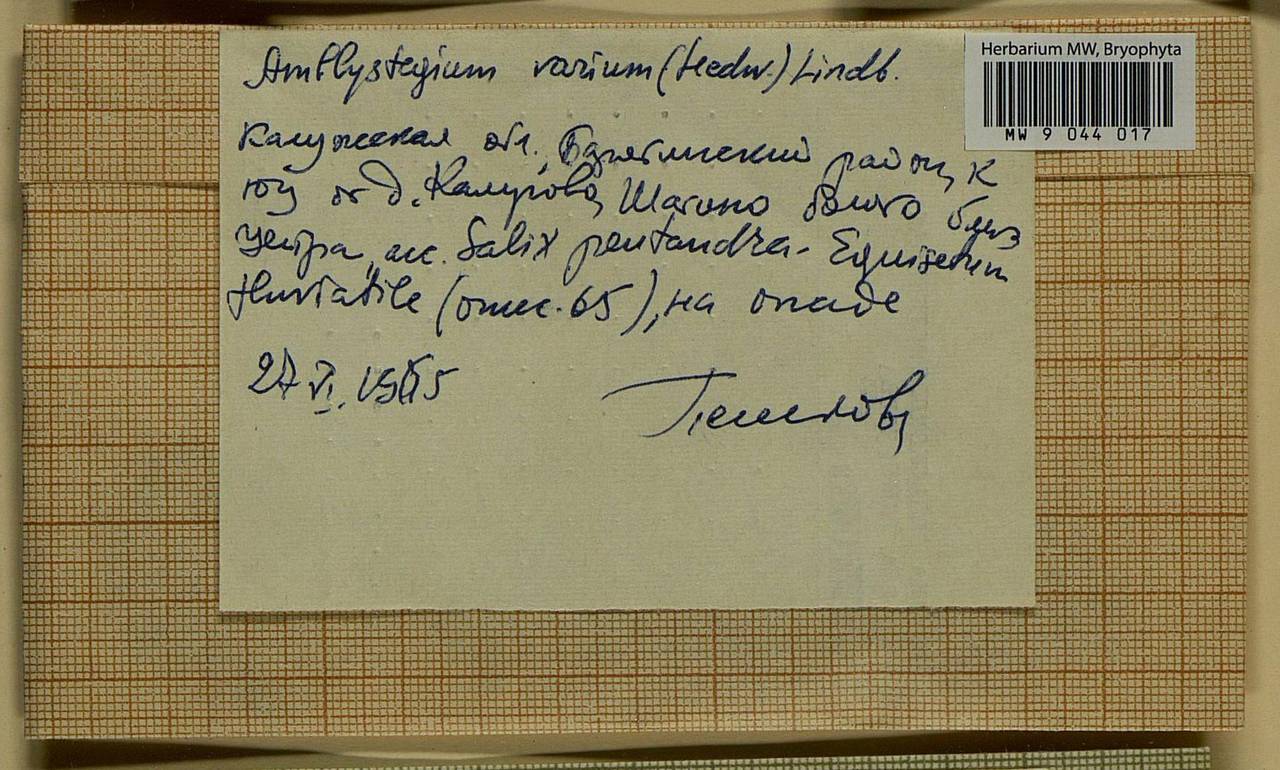 Herbarium MW, Bryophyta
MW 9 044 017
Amblystegium varium (Hedw.) Lindb.
Калужская обл., район, к
югу от д. Шатино болото близ
центра, асс. Salix pentandra - Equisetum
fluviatile (опис. 65), на опаде
27 VI.